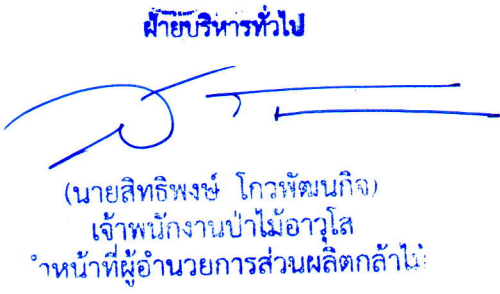 ฝ่ายบริหารทั่วไป
(นายสิทธิพงษ์ โกวพัฒนกิจ)
เจ้าพนักงานป่าไม้อาวุโส
ำหน้าที่ผู้อำนวยการส่วนผลิตกล้าไม้